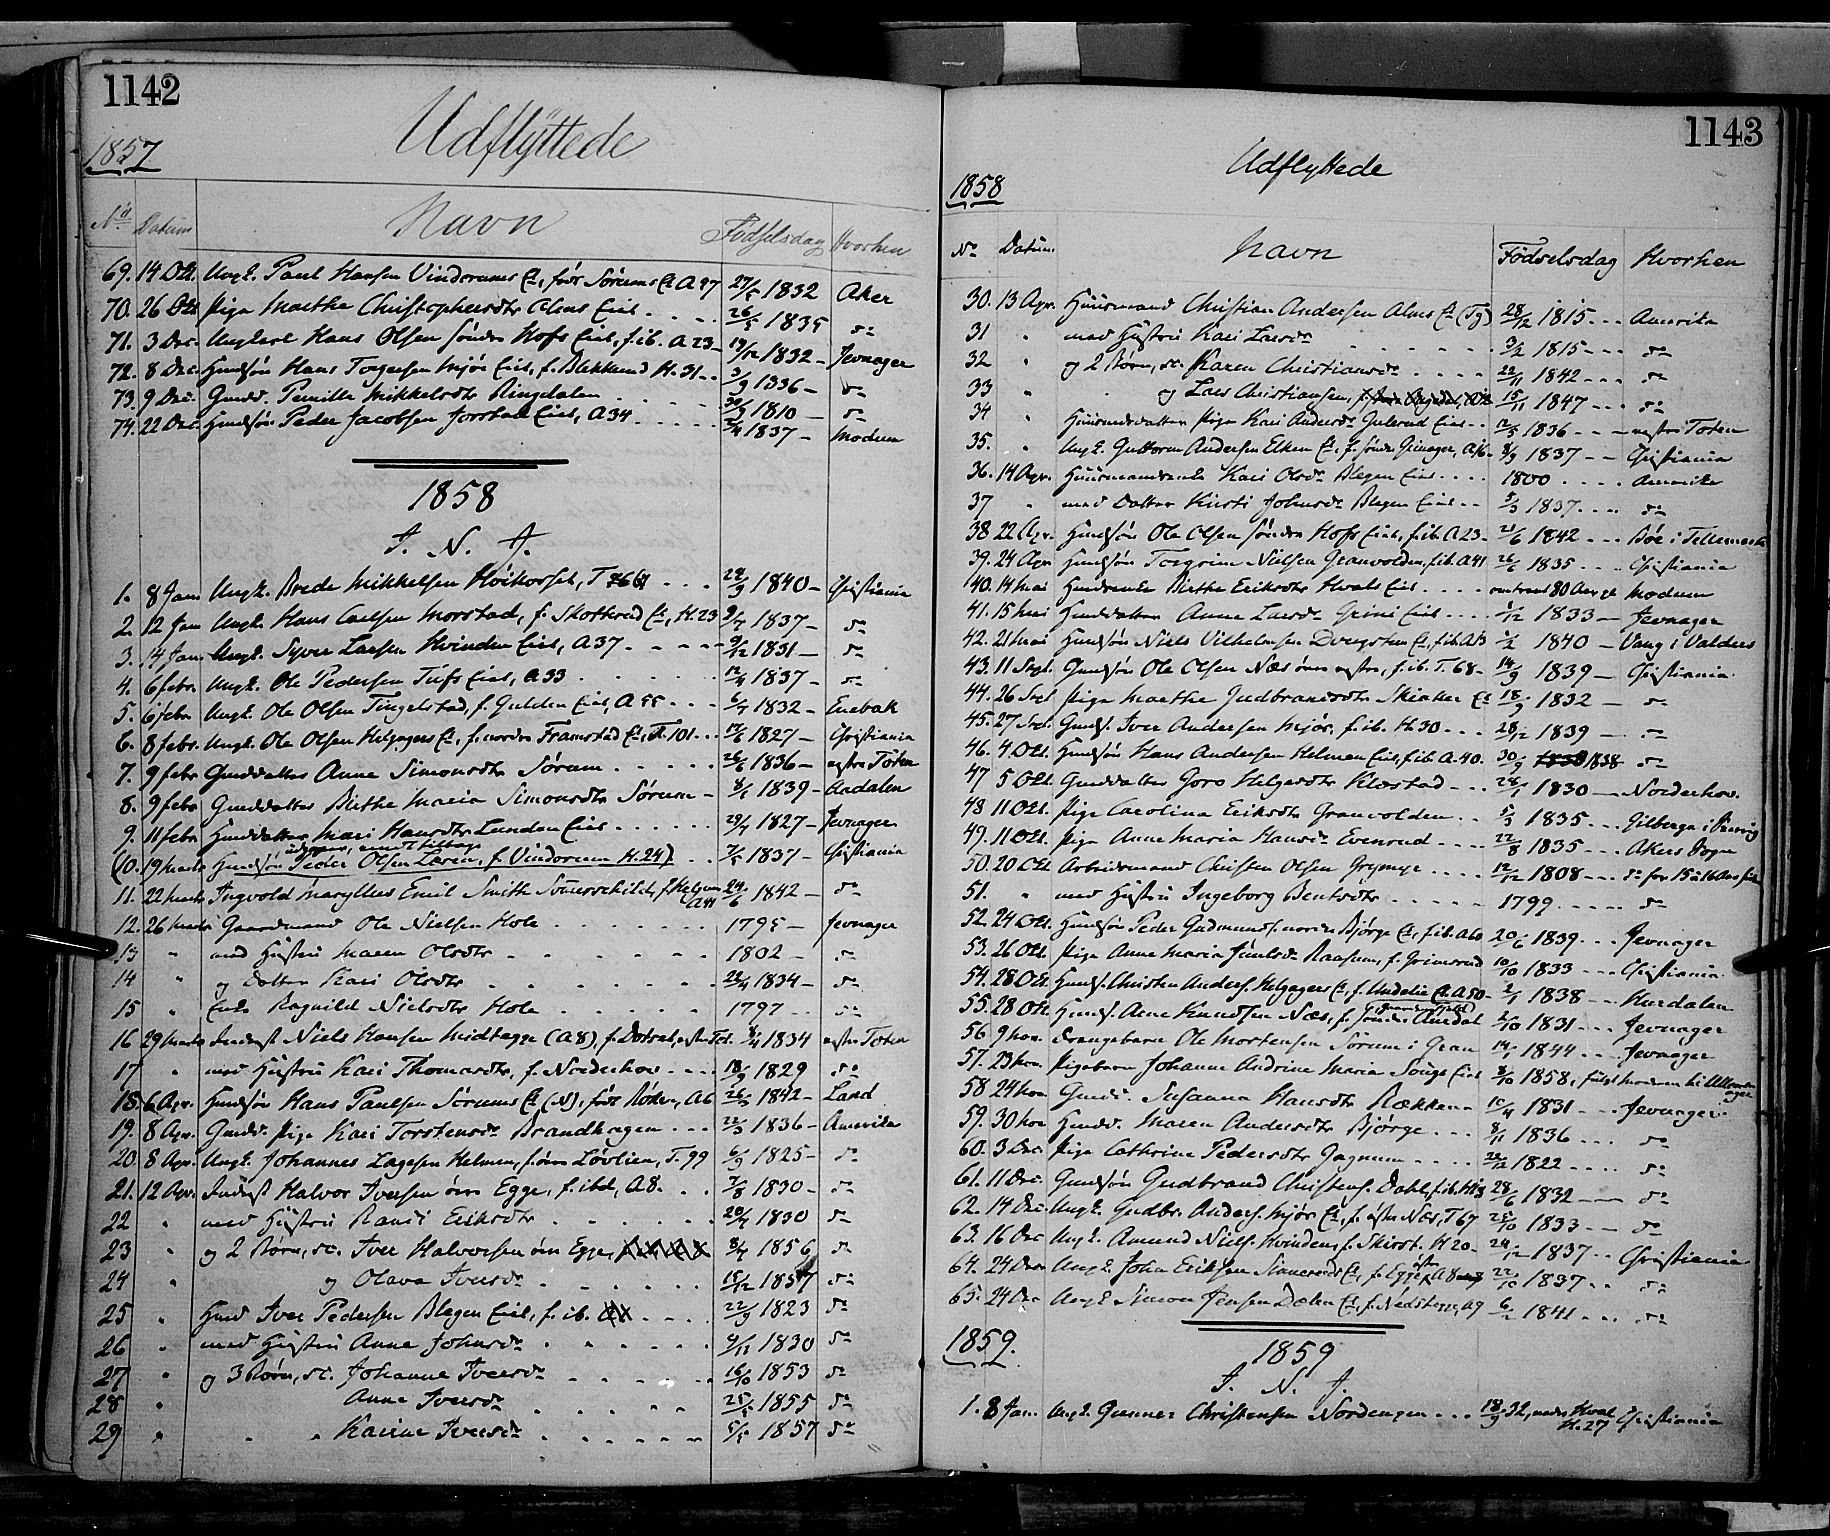 1142
Udflÿttede
1857
No Datum Navn Fødselsdag Hvorhen
69. 14 Okt. Ungk. Paul Hansen Vindorums E., født Sørums E. A 97 1832 Aker
70. 26 Okt. Pige Marthe Christophersdtr Alms Eie 26/5 1835 do
71. 3 Dec. Ungkarl Hans Olsen Søndre Hofs Eie, f. ib. A 23 19/12 1832 Jevnager
72. 8 Dec. Huusmds. Hans Torgersen Mjør Eie, f. Blekkend H. 31 3/9 1836 do
73. 9 Dec. Gmdd. Pernille Mikkelsdtr Ringdalen 1810 do
74. 22 Dec. Huusmds. Peder Jacobsen Jorstad Eie, A 34 2/4 1837 Modum
1858
I. N. J.
1. 8 Jan. Ungk. Brede Mikkelsen Høikorset, T 1840 Christiania
2. 12 Jan. Ungk. Hans Carlsen Morstad, f. Skotterud E., H. 23 1837 do
3. 14 Jan. Ungk. Syver Larsen Hvinden Eie, A 37 9/12 1831 do
4. 6 febr. Ungk. Ole Pedersen Tufs Eie, A 33 12/4 1837 do
5. 6 febr. Ungk. Ole Olsen Tingelstad, f. Gulden Eie, A 55 6/4 1832 Enebak
6. 8 febr. Ungk. Ole Olsen Helgagers E., f. nordre Framstad E., T. 101 17/6 1827 Christiania
7. 9 febr. Gmddatter Anne Simonsdtr Sørum 26/6 1836 vestre Toten
8. 9 febr. Gmddatter Birthe Maria Simonsdtr Sørum 1839 Aadalen
9. 11 febr. Hmddatter Mari Hansdtr Lunden Eie 29/4 1827 Jevnager
udgaar, vendt tilbage
(10. 19 Marts Hmdsøn Peder Olsen Løren, f. Vindorum H. 24) 7/5 1837 Christiania
11. 22 Marts Ingvold Maryllies Emil Smith Somerschild, f. Helgum A 41 24/6 1842 do
12. 26 Marts Gaardmand Ole Nielsen Hole 1795 Jevnager
13 " med Hustru Maren Olsdtr 1802 do
14 " og Datter Kari Olsdtr 1834 do
15 " Enke Ragnild Nielsdtr Hole 1797 do
16 29 Marts Inderst Niels Hansen Midtegge (A 8), f. vestre Tot. 8/4 1834 vestre Toten
17 " med Hustru Kari Thomasdtr, f. Norderhov 18/9 1829 do
18. 6 Apr. Hmdsøn Hans Paulsen Sørums E. (N), født Røken, A 6 26/3 1842 Land
19. 8 Apr. Gmdd. Pige Kari Torstensdr Brandhagen 22/3 1836 Amerika
20. 8 Apr. Ungk. Johannes Lagesen Helmen, f. øvre Løvlien, T. 99 6/9 1825 do
21. 12 Apr. Inderst Halvor Iversen øvre Egge, f. ibd, A 8. 7/8 1830 do
22 " med Hustru Randi Eriksdtr 20/4 1830 do
23 " og 2 Børn, sc. Iver Halvorsen øvre Egge, 8/4 1856 do
24 " og Olava Iversdr 15/12 1857 do
25 " Hmd Iver Pedersen Blegen Eie, f. ib. 22/9 1823 do
26 " med Hustru Anne Johnsdr 4/11 1830 do
27 " og 3 Børn, sc. Johanne Iversdr 16/10 1853 do
28 " Anne Iversdr 25/5 1855 do
29 " Karine Iversdr 5/5 1857 do
1143
Udflyttede
1858
No Datum Navn Födselsdag Hvorhen
30. 13 Apr. Huusmand Christian Andersen Alms E. (Tg) 28/12 1815 Amerika
31 " med Hustru Kari Larsdr 3/2 1815 do
32 " og 2 Børn, sc. Karen Christiansdr 22/11 1842 do
33 " og Lars Christiansen, 15/11 1847 do
34 " Huusmdsdatter Pige Kari Andersdr Gulerud Eie 12/5 1836 vestre Toten
35. " Ungk. Guttorm Andersen Elken E., f. søndre Grinager, A 16 8/9 1837 Christiania
36. 14 Apr. Huusmandsenke Kari Olsdr Blegen Eie 1800 Amerika
37 " med Datter Kirsti Johnsdr Blegen Eie 3/3 1837 do
38 22 Apr. Hmdsøn Ole Olsen Søndre Hofs Eie, f. ib. A 23 21/6 1842 Bøe i Tellemarken
39. 24 Apr. Hmdsøn Torgrim Nielsen Granvolden, f. ib. A 41 26/6 1835 Christiania
40. 14 Mai Hmdsenke Birthe Eriksdtr Hvals Eie omtrent 80 Aar gl. Modum
41. 15 Mai Hmddatter Anne Larsdr Grini Eie 1/12 1833 Jevnager
42. 21 Mai Hmdsøn Niels Vilhelmsen Dvergsten E., f. ib. A 13 1840 Vang i Valders
43. 11 Sept. Gmdsøn Ole Olsen Næs øvre vestre, f. ib. T. 68 14/9 1839 Christiania
44. 26 Sept. Pige Marthe Gudbrandsdtr Skiaker E. 18/9 1832 do
45. 27 Sept. Gmds. Iver Andersen Mjør, f. ib. H. 30 28/12 1839 do
46. 4 Okt. Hmdsøn Hans Andersen Helmen Eie, f. ib. A. 40. 30/9 1838 1838 do
47 5 Okt. Gmddatter Goro Helgesdtr Klæstad 28/1 1830 Norderhov.
48 11 Okt. Pige Carolina Eriksdtr Granvolden 5/3 1835 Gilberga i Sverrig
49. 11 Okt. Pige Anne Maria Hansdr Evenrud 22/8 1835 Akers Sogn
50. 20 Okt. Arbeidsmand Christen Olsen Grymyr 12/12 1808 do for 15 a 16 Aar siden
51. " med Hustru Ingeborg Bentsdtr 1799 do
52. 24 Okt. Hmdsøn Peder Gudmunds. nordre Bjørge E., f. ib. A 60 20/6 1839 Jevnager
53. 26 Okt. Pige Anne Maria Raasum, f. Grimsrud 10/10 1833 Christiania
54. 28 Okt. Hmds. Christen Anders. Helgagers E., f. A 50 2/1 1838 Hurdalen
55. 28 Okt. Hmds. Arne Knudsen Næs, f. søndre Aurdal 2/10 1831 Jevnager
56. 9 Nov. Drengebarn Ole Mortensen Sørum i Gran 14/1 1844 Jevnager
57. 23 Nov. Pigebarn Johanne Andrine Maria Songe Eie 8/10 1858, fulgt Moderen til
58 24 Nov Gmdd. Susanna Hansdtr Rækken 10/4 1831 Jevnager
59. 30 Nov Hmdd. Maren Andersdtr Bjørge 8/11 1836 do
60. 3 Dec. Pige Cathrine Pedersdtr Gagnum 22/12 1822 do
61. 11 Dec. Gmdsøn Gudbrand Christens. Dahl, f. ib. H 13 28/6 1832 do
62. 14 Dec. Ungk. Gudbr. Anders. Mjør E., f. østre Næs, T 67 25/10 1833 do
63. 16 Dec Ungk. Amund Niels. Hvinden, f. Skirst. H 20 24/12 1837 Christiania
64. 24 Dec. Ungk. John Eriksen Sinnerud E., f. Egge A 8 22/10 1837 do
65. 24 Dec Ungk. Simon Jensen Dælen E., f. A 9 6/2 1841 do
1859.
1859
I. N. J.
1. 8 Jan. Ungk. Gunner Christensen Nordengen 18/9 32, nedre Hval H. 27 Christiania